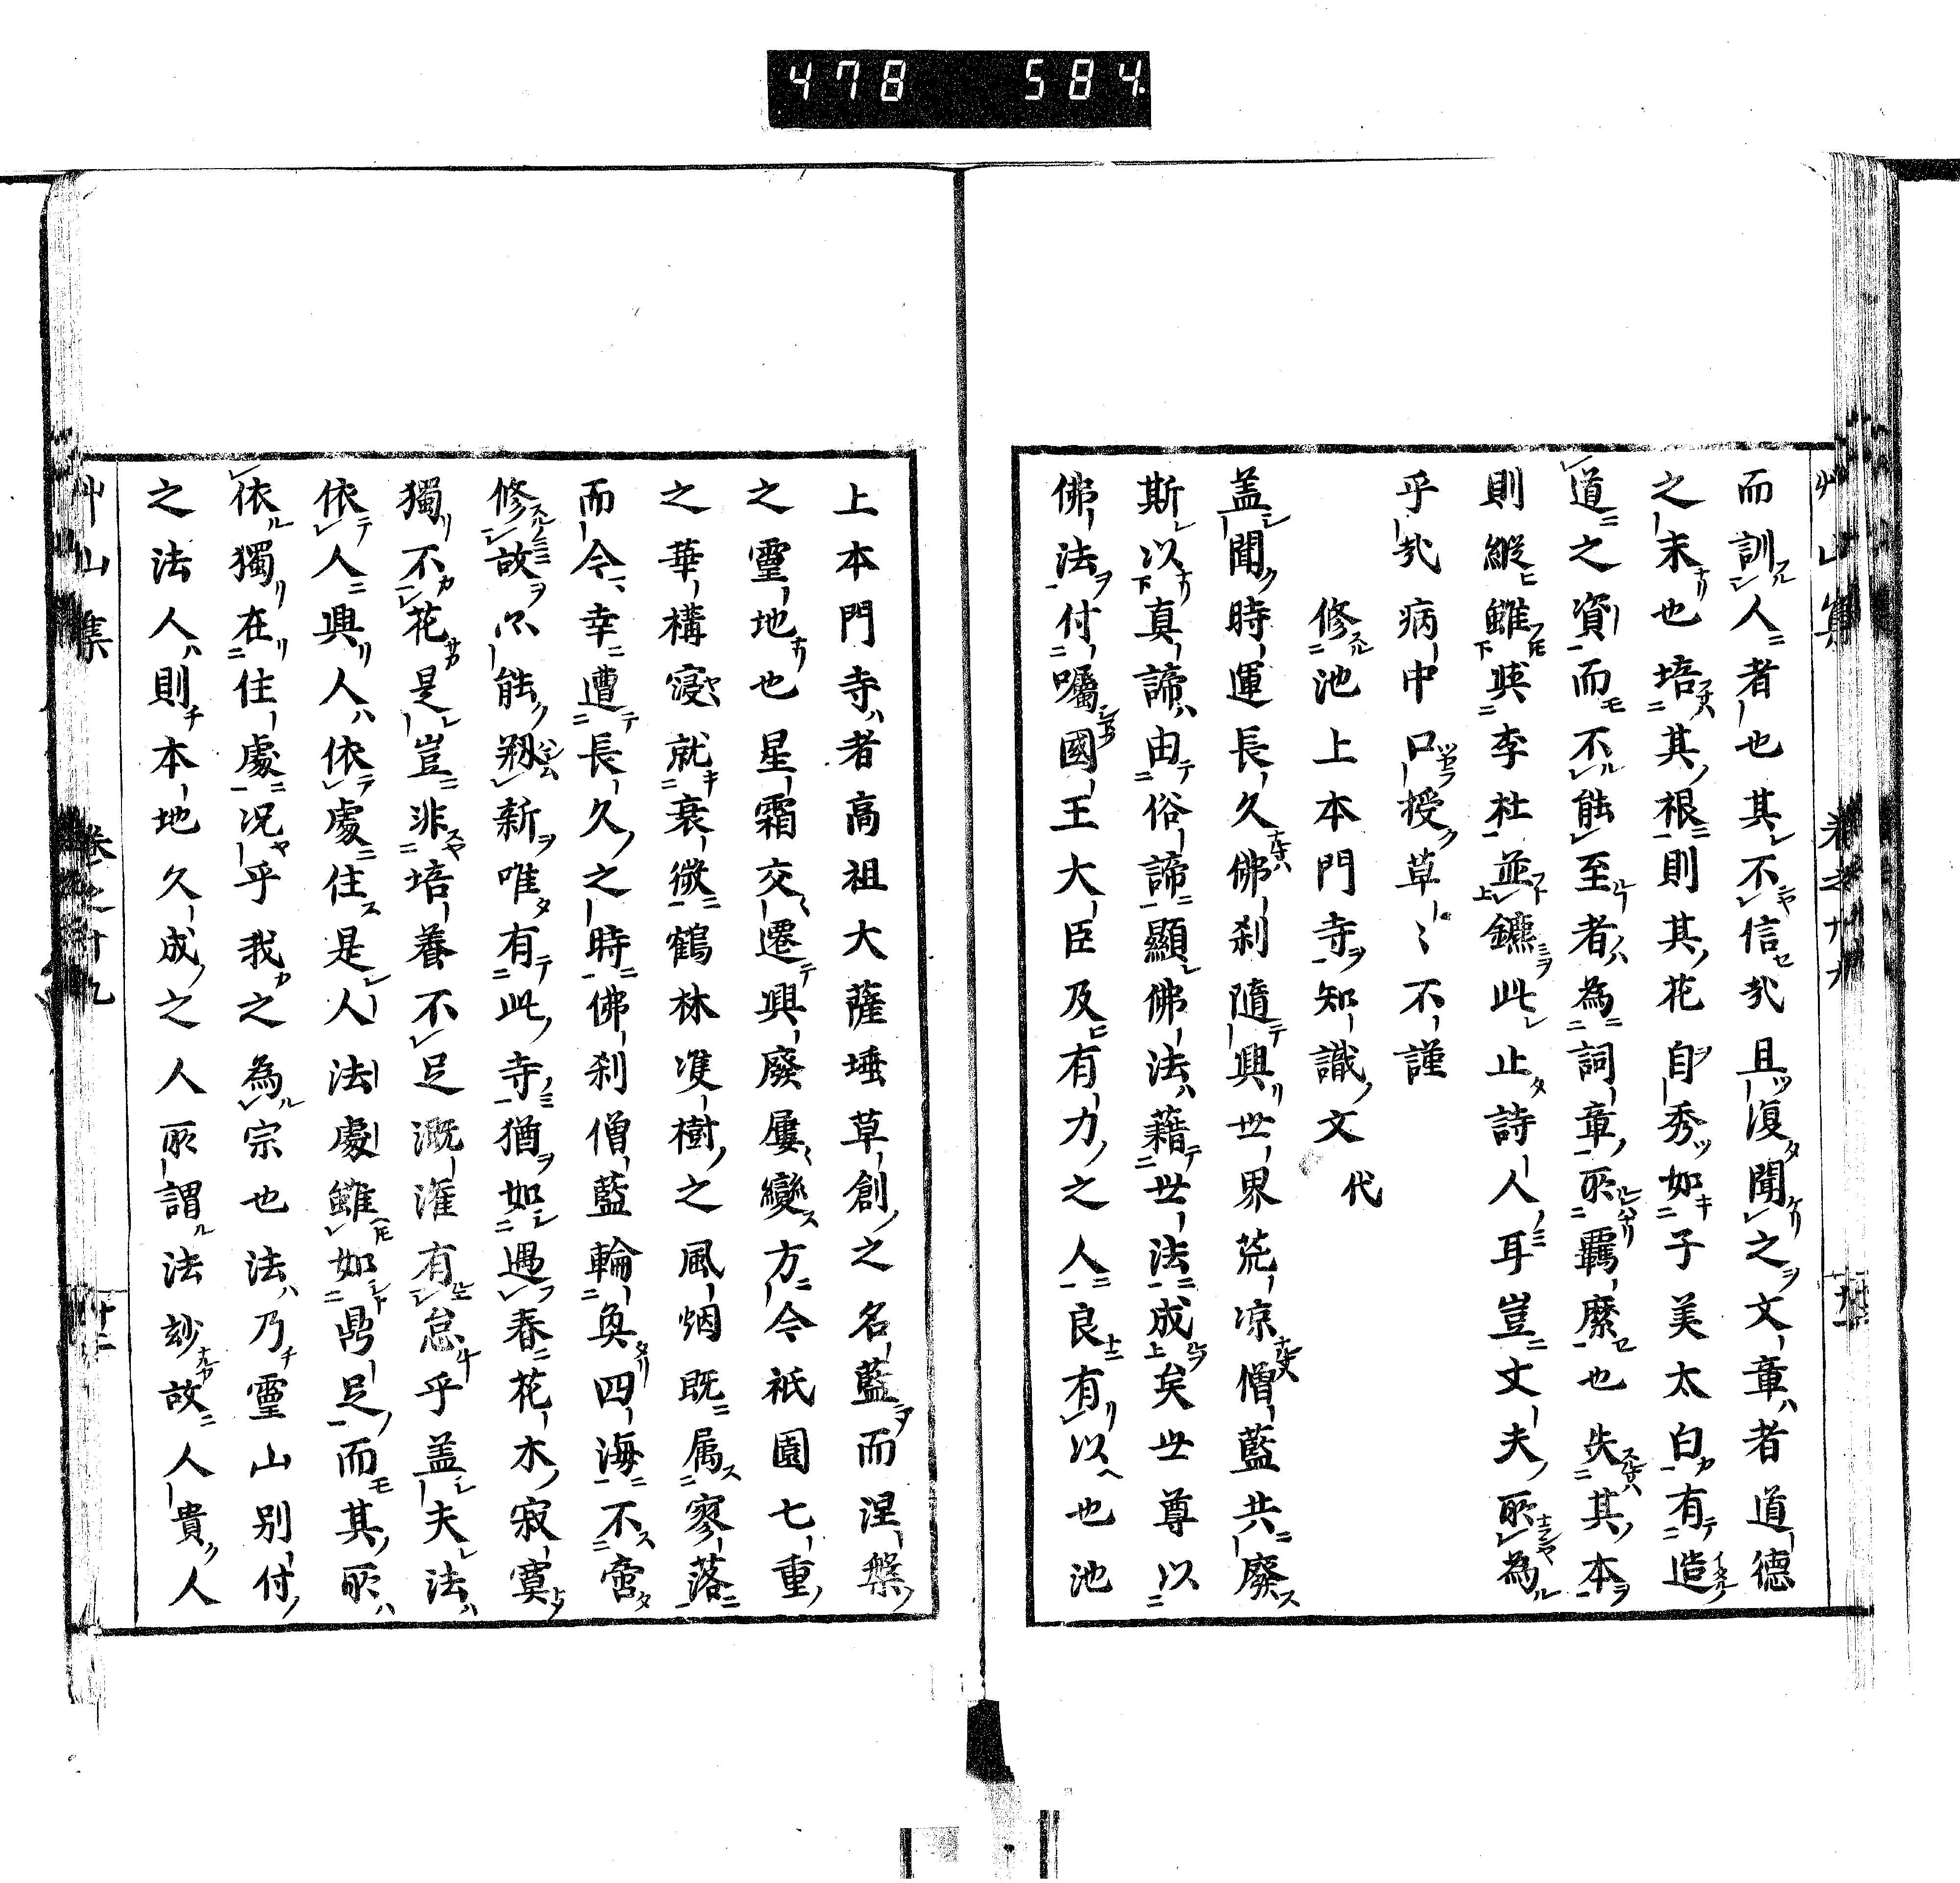 478 584
而訓人者也其不信哉且復聞之文章者道德
之末也培其根則其花自秀如子美太白有造
道之資而不能至者為詞章所羈縻也失其本
則縱雖與李杜並鑣此止詩人耳豈丈夫所為
乎哉病中口授草〻不謹
修池上本門寺知識文 代
盖聞時運長久佛刹隨興世界荒凉僧藍共廢
斯以真諦由俗諦顯佛法藉世法成矣世尊以
佛法付囑國王大臣及有力之人良有以也池
上本門寺者高祖大薩埵草創之名藍而涅槃
之靈地也星霜交遷興廢屢變方今祇園七重
之華構寖就衰微鶴林雙樹之風烟既属寥落
而今幸遭長久之時佛刹僧藍輪奐四海不啻
修故以能剏新唯有此寺猶如遇春花木寂寞
獨不花是豈非培養不足溉灌有怠乎盖夫法
依人興人依處住是人法處雖如鼎足而其所
依獨在住處况乎我之為宗也法乃靈山別付
之法人則本地久成之人所謂法玅故人貴人
艸山集 卷之十九 十二